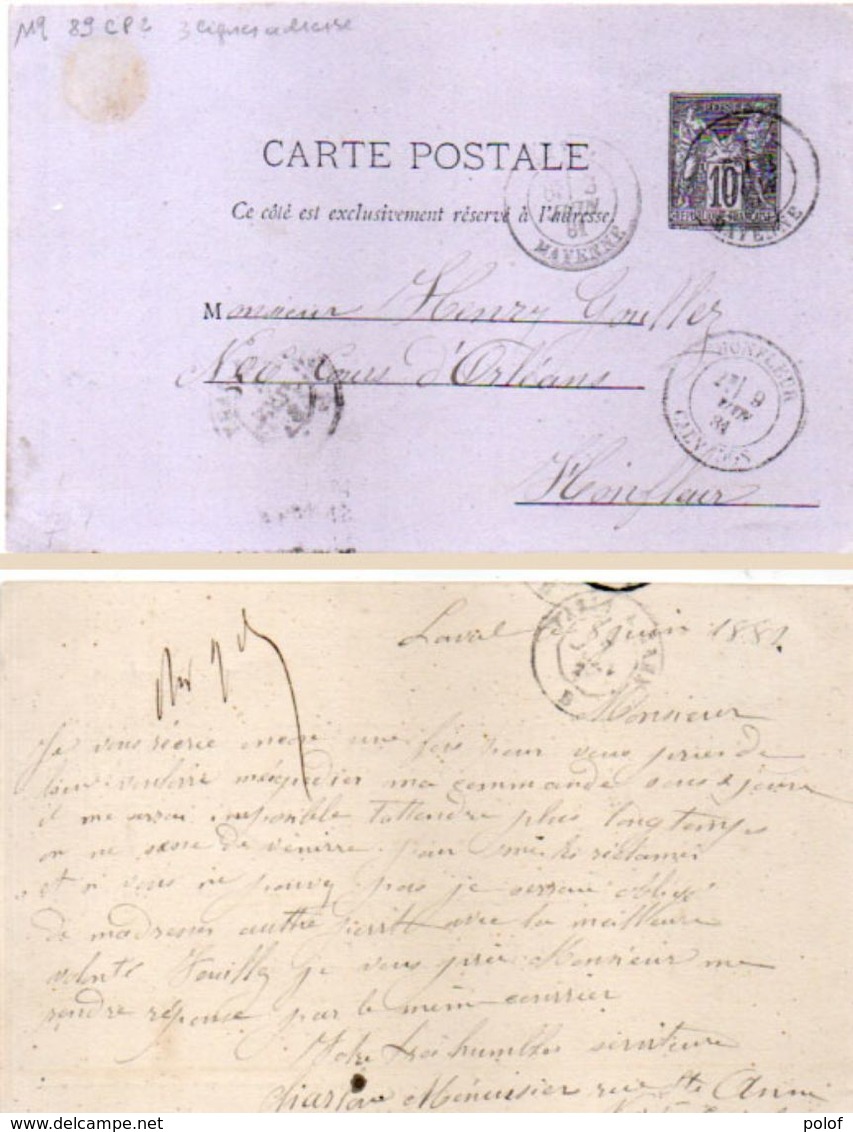 89 CP 2 3 lignes adresse
CARTE POSTALE
Ce côté est exclusivement réservé à l'adresse.
POSTE
10
REPUBLIQUE FRANÇAISE
MAYENNE
MAYENNE
Monsieur Henry Goulley
Cours d'Orléans
HONFLEUR
9
JUIN
81
CALVADOS
Honfleur
Laval le 8 juin 1881.
Monsieur
Je vous récrie encore une fois pour vous prier de
vouloire méxpedier ma commande sous 8 jours
il me serrai imposible d'attendre plus longtemps
on ne sesse de venire pour me les réclamer
et si vous ne pouvez pas je serrai obligé
de madresser autre part avec la meilleure
volonté Veuillez je vous prie Monsieur me
rendre réponse par le même courrier
Votre très humbles serviteure
Menuisier rue Ste Anne
polof